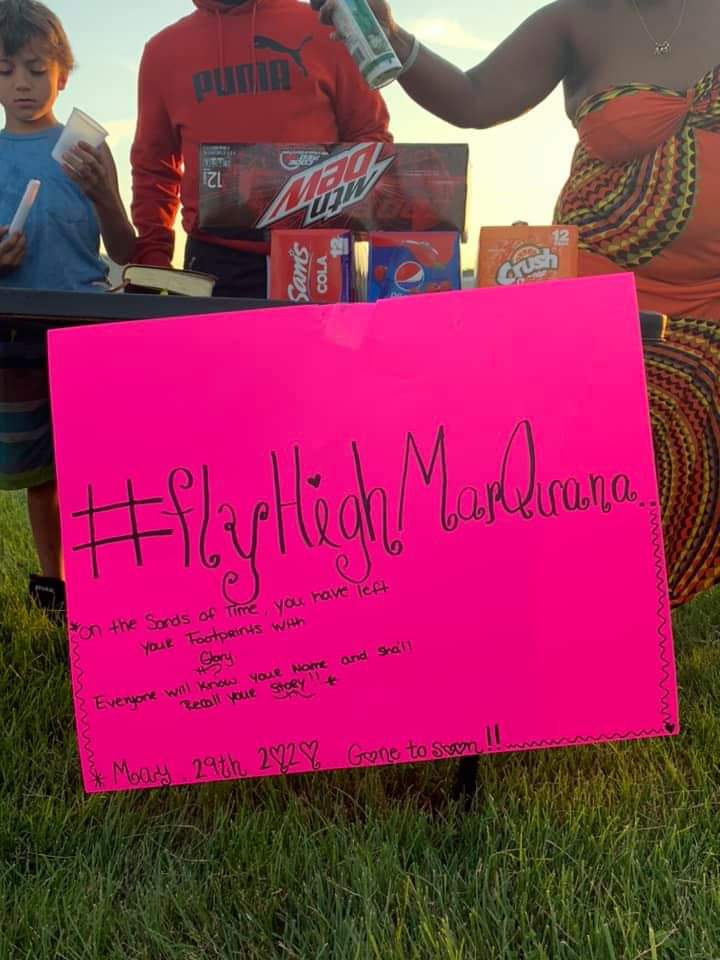 PUMA
12
CODE RED
mtn DEW
Sam's
COLA
12
pepsi
12
Crush
#flyHighMarQuana..
*On the Sands of Time, you have left
your Footprints with
Glory
Everyone will know your Name and shall
Recall your Story!! *
* May. 29th 2020 Gone to soon!!